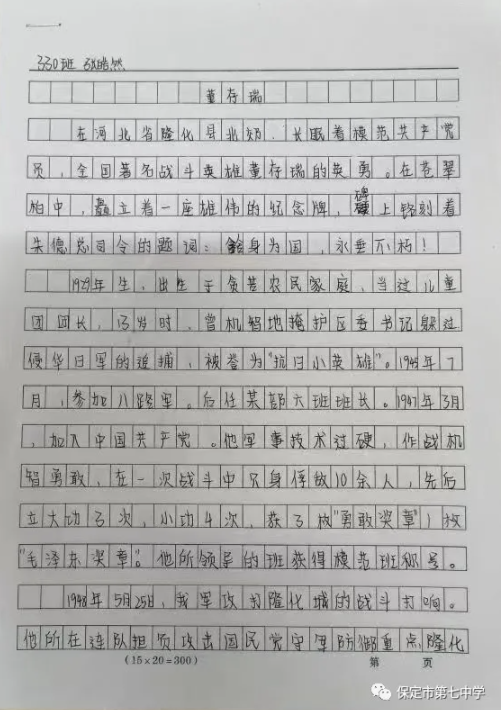 330班 张皓然
董存瑞
在河北省隆化县北郊，长眠着模范共产党
员，全国著名战斗英雄董存瑞的英勇。在苍翠
柏中，矗立着一座雄伟的纪念牌，碑上铭刻着
朱德总司令的题词：舍身为国，永垂不朽！
1929年生，出生于贫苦农民家庭，当过儿童
团团长，13岁时，曾机智地掩护区委书记躲过
侵华日军的追捕，被誉为"抗日小英雄"。1945年7
月，参加八路军。后任某部六班班长。1947年3月
，加入中国共产党。他军事技术过硬，作战机
智勇敢，在一次战斗中只身俘敌10余人，先后
立大功3次，小功4次，获3枚"勇敢奖章"1枚
"毛泽东奖章"。他所领导的班获得模范班称号。
1948年5月25日，我军攻打隆化城的战斗打响。
他所在连队担负攻击国民党守军防御重点隆化
(15×20=300) 第 页
保定市第七中学